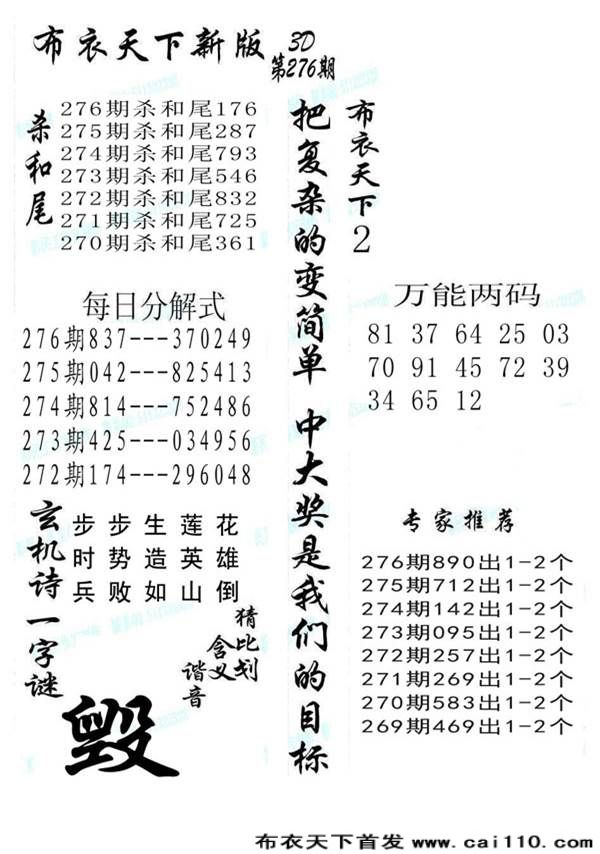 布衣天下新版 3D
第276期
杀和尾
276期杀和尾176
275期杀和尾287
274期杀和尾793
273期杀和尾546
272期杀和尾832
271期杀和尾725
270期杀和尾361
每日分解式
276期837---370249
275期042---825413
274期814---752486
273期425---034956
272期174---296048
玄机诗
步步生莲花
时势造英雄
兵败如山倒
一字谜
猜比划
含义
谐音
毁
把复杂的变简单 中大奖是我们的目标
布衣天下2
万能两码
81 37 64 25 03
70 91 45 72 39
34 65 12
专家推荐
276期890出1-2个
275期712出1-2个
274期142出1-2个
273期095出1-2个
272期257出1-2个
271期269出1-2个
270期583出1-2个
269期469出1-2个
布衣天下首发 www.cai110.com